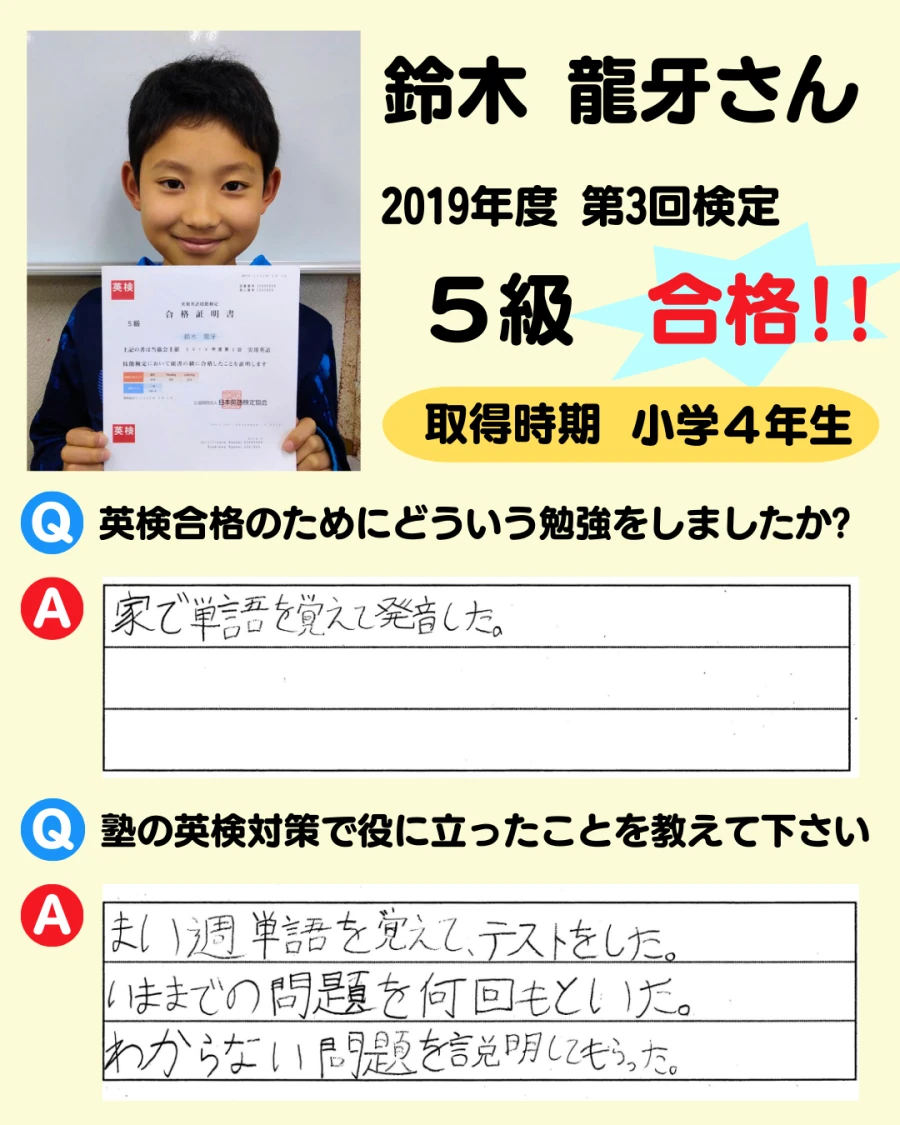 鈴木 龍牙さん
2019年度 第3回検定
5級 合格!!
取得時期 小学4年生
英検
実用英語技能検定
合格証明書
5級
鈴木 龍牙
技能検定において頭書の級に合格したことを証明します
日本英語検定協会
英検
Q 英検合格のためにどういう勉強をしましたか?
A 家で単語を覚えて発音した。
Q 塾の英検対策で役に立ったことを教えて下さい
A まい週単語を覚えて、テストをした。
いままでの問題を何回もといた。
わからない問題を説明してもらった。